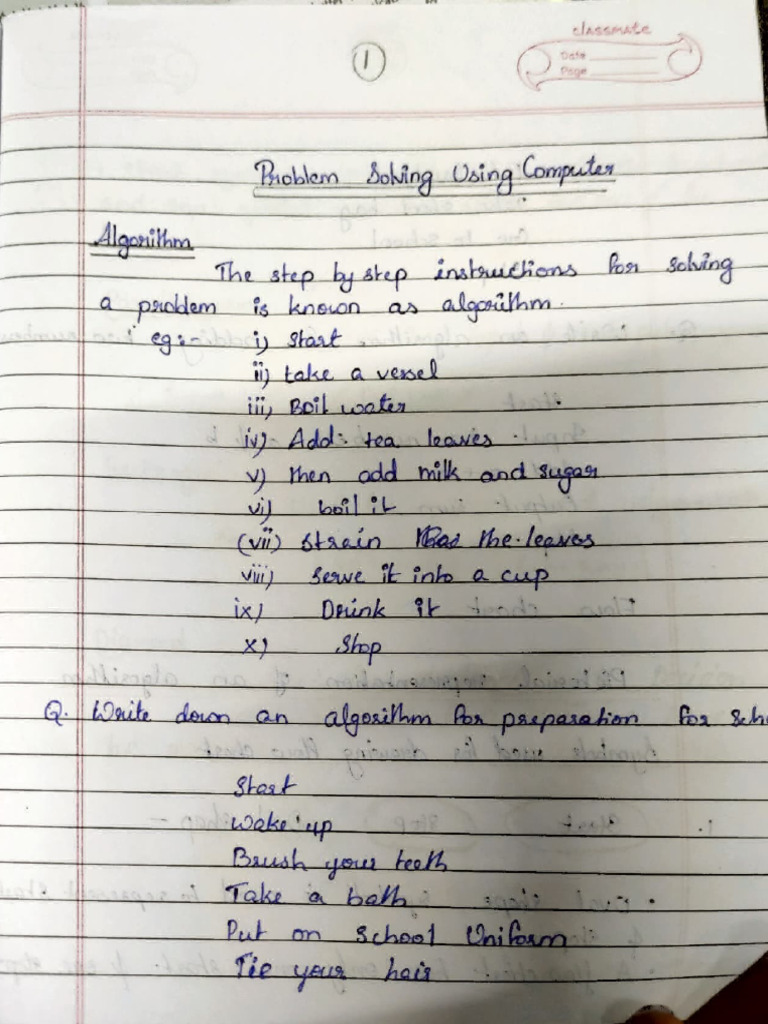 classmate
Date
Page
1
Problem Solving Using Computer
Algorithm
The step by step instructions for solving
a problem is known as algorithm.
eg:- i) Start
ii) take a vessel
iii) Boil water
iv) Add tea leaves
v) then add milk and sugar
vi) boil it
(vii) Strain the leaves
viii) Serve it into a cup
ix) Drink it
x) Stop
Q. Write down an algorithm for preparation for sch
Start
Wake up
Brush your teeth
Take a bath
Put on School Uniform
Tie your hair